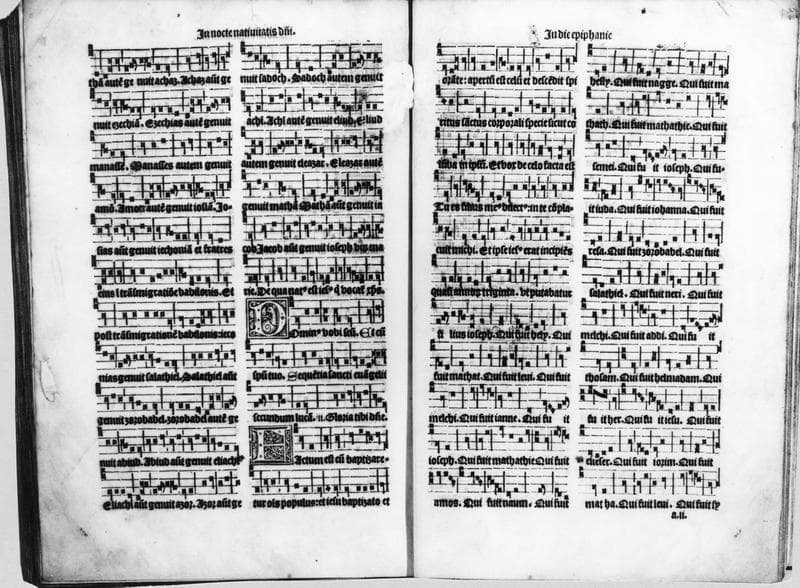 In nocte nativitatis dñi.
thã autẽ ge nuit achaz. Achaz aũt ge
nuit ezechiã. Ezechias autẽ genuit
manassẽ. Manasses autem genuit
amõ. Amon autẽ genuit iosiã. Jo-
sias aũt genuit iechoniã et fratres
eius ĩ trãsmigratiõe babilonis. Et
post trãsmigrationẽ babilonis: iecho
nias genuit salathiel. Salathiel aũt
genuit zorobabel. zorobabel autẽ ge
nuit abiud. Abiud aũt genuit eliachĩ
Eliachĩ aũt genuit azor. Azor aũt ge
nuit sadoch. Sadoch autem genuit
achĩ. Achĩ autẽ genuit eliud. Eliud
autem genuit eleazar. Eleazar autẽ
genuit mathã Mathã aũt genuit ia
cob Jacob aũt genuit ioseph virũ ma
rie. De qua natꝰ est iesꝰ q̃ vocat᷑ xp̃s.
Dominꝰ vobiscũ. Et cũ
spũ tuo. Sequẽtia sancti euãgelii
secundum lucã. Gloria tibi dñe.
Factum est cũ baptizare-
tur oĩs populus: et iesu baptizato et
In die epiphanie
orãte: apertũ est celũ et descẽdit spi
ritus sãctus corporali specie sicut co
lũba in ipsũ. Et vox de celo facta est
Tu es filius meꝰ dilectꝰ: in te cõpla-
cuit michi. Et ipse iesꝰ erat incipiẽs
quasi annorũ triginta. vt putabatur
fi lius ioseph. Qui fuit hely. Qui
fuit mathat. Qui fuit leui. Qui fuit
melchi. Qui fuit ianne. Qui fu it
ioseph. Qui fuit mathathie Qui fuit
amos. Qui fuit naum. Qui fuit
hesly. Qui fuit nagge. Qui fuit ma
thath. Qui fuit mathathie. Qui fuit
semei. Qui fu it ioseph. Qui fu-
it iuda. Qui fuit iohanna. Qui fuit
resa. Qui fuit zorobabel. Qui fuit
salathiel. Qui fuit neri. Qui fuit
melchi. Qui fuit addi. Qui fu it
chosam. Qui fuit helmadam. Qui
fu it her. Qui fu it iesu. Qui fuit
elieser. Qui fuit iorim. Qui fuit
mat ha. Qui fuit leui. Qui fuit sy
a.ii.